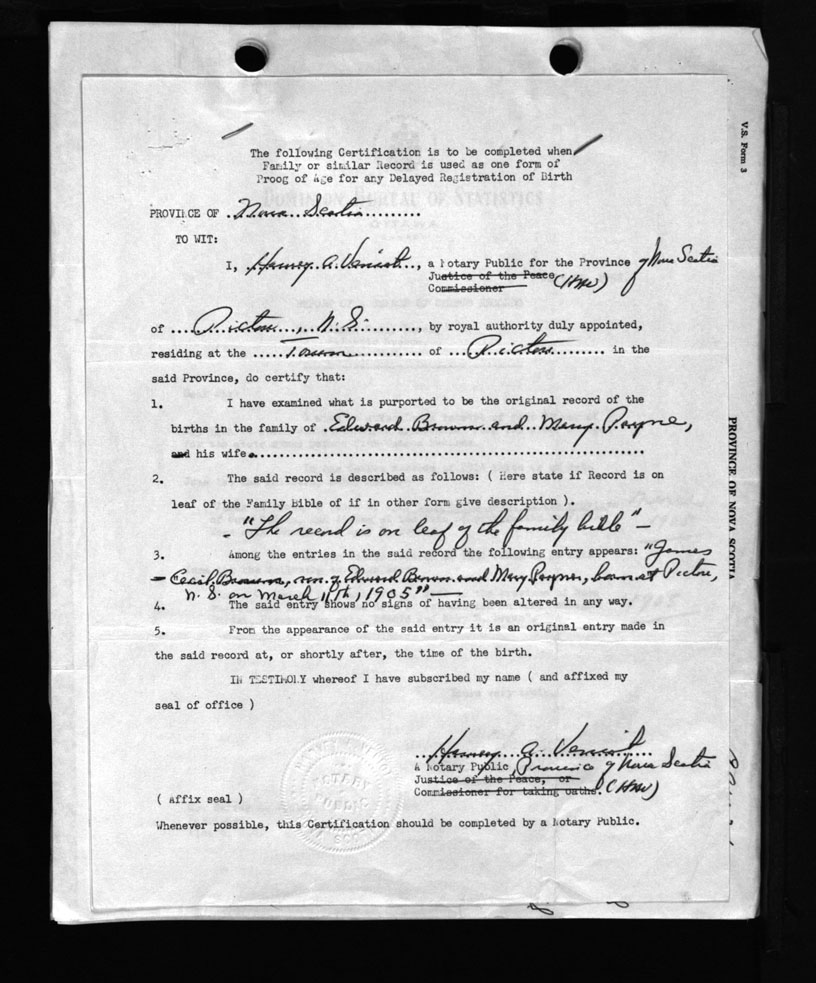 The following Certification is to be completed when
Family or similar Record is used as one form of
Proog of Age for any Delayed Registration of Birth
V.S. Form 3
DOMINION BUREAU OF STATISTICS
OTTAWA
PROVINCE OF .Nova Scotia..........
TO WIT:
I, .Harvey A. Veniott.., a Notary Public for the Province of Nova Scotia
Justice of the Peace (HAV)
Commissioner
of ....Pictou...., N.S..........., by royal authority duly appointed,
residing at the .....Town............. of ...Pictou......... in the
said Province, do certify that:
1. I have examined what is purported to be the original record of the
births in the family of .Edward Brown and Mary Payne,
and his wife............................................................
2. The said record is described as follows: ( Here state if Record is on
leaf of the Family Bible of if in other form give description ).
- "The record is on leaf of the family bible" -
3. Among the entries in the said record the following entry appears: "James
- Cecil Brown, son of Edward Brown and Mary Payne, born at Pictou,
N.S. on March 11th, 1905" -
4. The said entry shows no signs of having been altered in any way.
5. From the appearance of the said entry it is an original entry made in
the said record at, or shortly after, the time of the birth.
IN TESTIMONY whereof I have subscribed my name ( and affixed my
seal of office )
Harvey A. Veniott
A Notary Public, Province of Nova Scotia
Justice of the Peace, or
Commissioner for taking oaths. (HAV)
NOTARY PUBLIC
( Affix seal )
Whenever possible, this Certification should be completed by a Notary Public.
PROVINCE OF NOVA SCOTIA